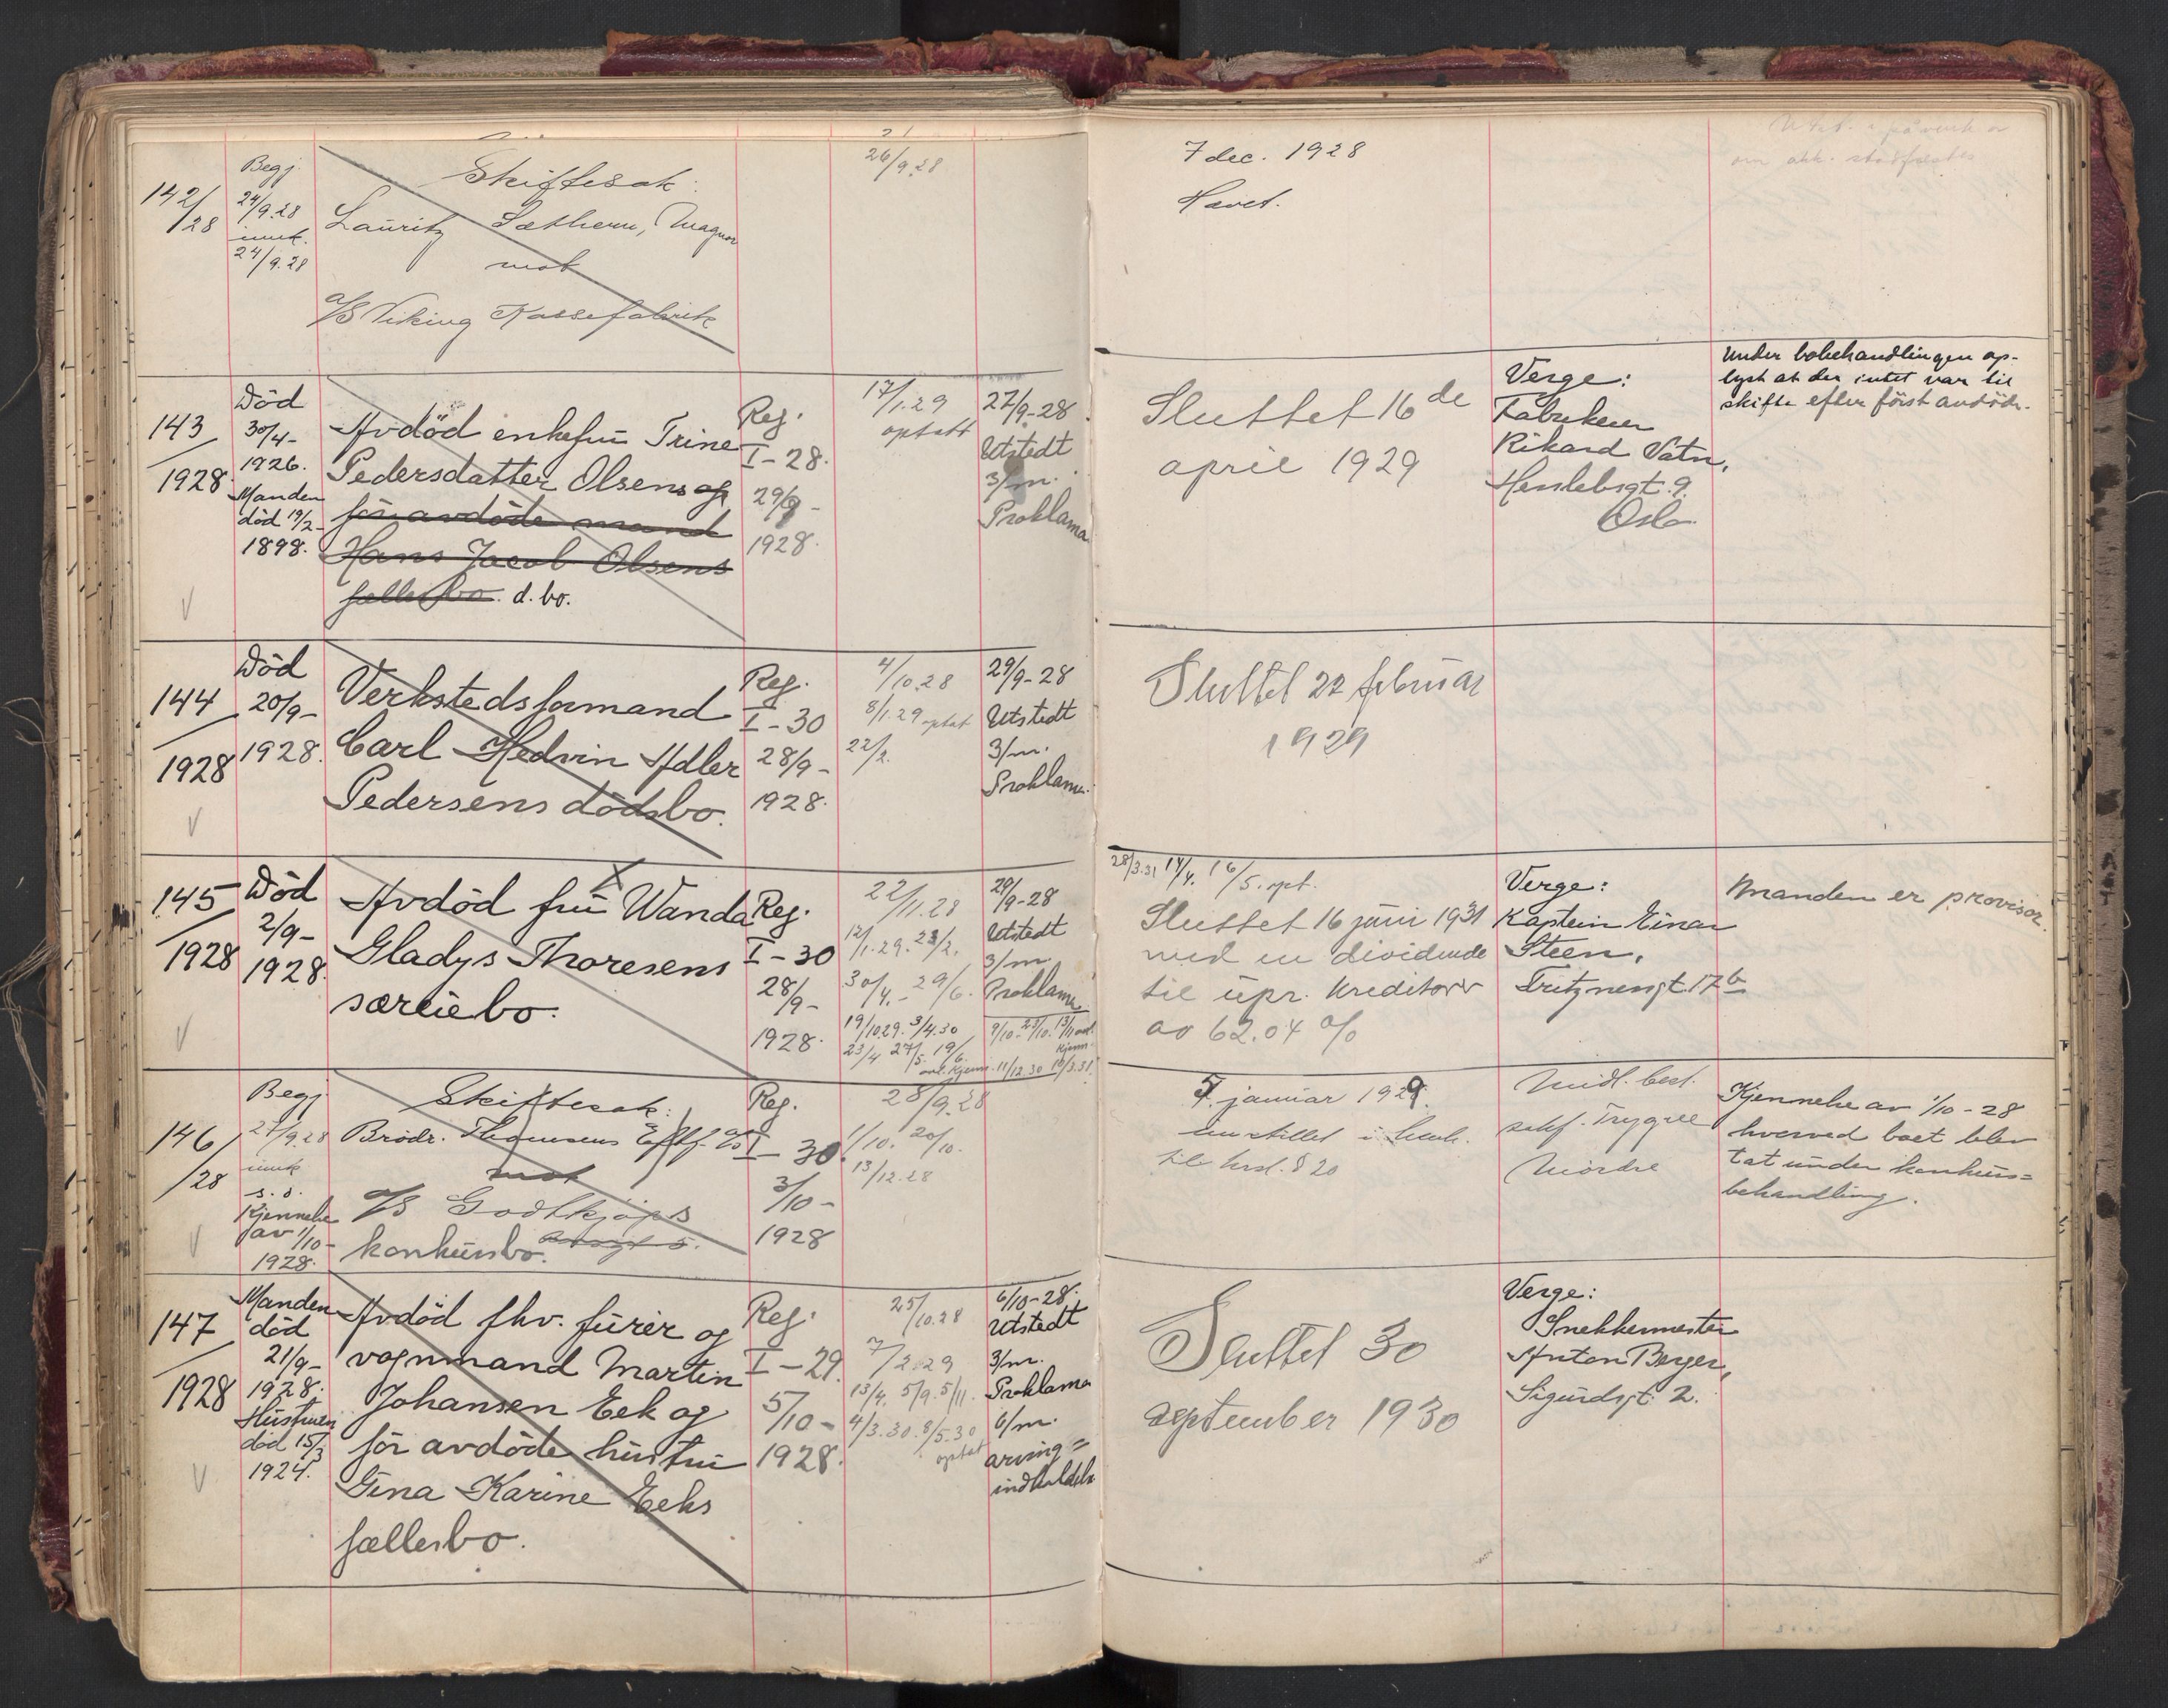 142/28
Begj.
24/9.28
innk.
24/9.28
Skiftesak:
Lauritz Sæthern, Magnor
mot
a/S Viking Kassefabrik
26/9.28
7 dec. 1928
Hævet.
143/1928
Død
30/4-
1926.
Manden
død 19/2-
1898.
Avdød enkefru Trine
Pedersdatter Olsens og
før avdøde mand
Hans Jacob Olsens
fællesbo. d. bo.
Reg.
I-28.
29/9-
1928.
17/1.29
optatt
27/9-28
Utstedt
3/m.
Proklama
Sluttet 16de
april 1929
Verge:
Fabrikeier
Rikard Vatn,
Herslebsgt. 9.
Oslo
Under bobehandlingen op-
lyst at der intet var til
skifte efter først avdøde.
144/1928
Død
20/9-
1928.
Verkstedsformand
Carl Hedvin Adler
Pedersens dødsbo.
Reg.
I-30
28/9-
1928.
4/10.28
8/1.29 optat
22/2.
29/9-28
Utstedt
3/m.
Proklama.
Sluttet 22 februar
1929
145/1928
Død
2/9-
1928.
Avdød fru Wanda
Gladys Thoresens
særeiebo.
Reg.
I-30
28/9-
1928.
22/11.28
12/1.29. 23/2.
30/4.- 29/6.
19/10.29. 3/4.30
23/4 27/5. 19/6.
29/9-28
Utstedt
3/m.
Proklama
9/10- 23/10. 13/11 avl.
kjenn.
avl. kjenn. 11/12.30 10/3.31.
28/3.31 14/4. 16/5. opt.
Sluttet 16 juni 1931
med en dividende
til upr. kreditorer
av 62.04 %
Verge:
Kaptein Einar
Steen,
Fritznersgt. 17b
Manden er provisor.
146/28
Begj
27/9.28
innk
s. d.
Kjennelse
av 1/10-
1928.
Skiftesak:
Brødr. Thomsens Eftf. a/S
mot
a/S Godtkjøps
konkursbo.
Reg.
I-30.
3/10-
1928
28/9.28
1/10. 20/10.
13/12.28
5. januar 1929.
innstillet i henh.
til krsl. § 20
Midl. best.
sakf. Trygve
Mørdre
Kjennelse av 1/10-28
hvorved boet blev
tat under konkurs=
behandling.
147/1928
Manden
død
21/9-
1928.
Hustruen
død 15/3
1924.
Avdød fhv. furér og
vognmand Martin
Johansen Eek og
før avdøde hustru
Gina Karine Eeks
fællesbo.
Reg.
I-29.
5/10-
1928.
25/10.28
7/2.29
13/4. 5/9. 5/11.
4/3.30. 8/5.30
optat
6/10-28.
Utstedt
3/m.
Proklama
6/m.
arving=
indkaldelse
Sluttet 30
september 1930
Verge:
Snekkermester
Anton Berger,
Sigurdsgt. 2.